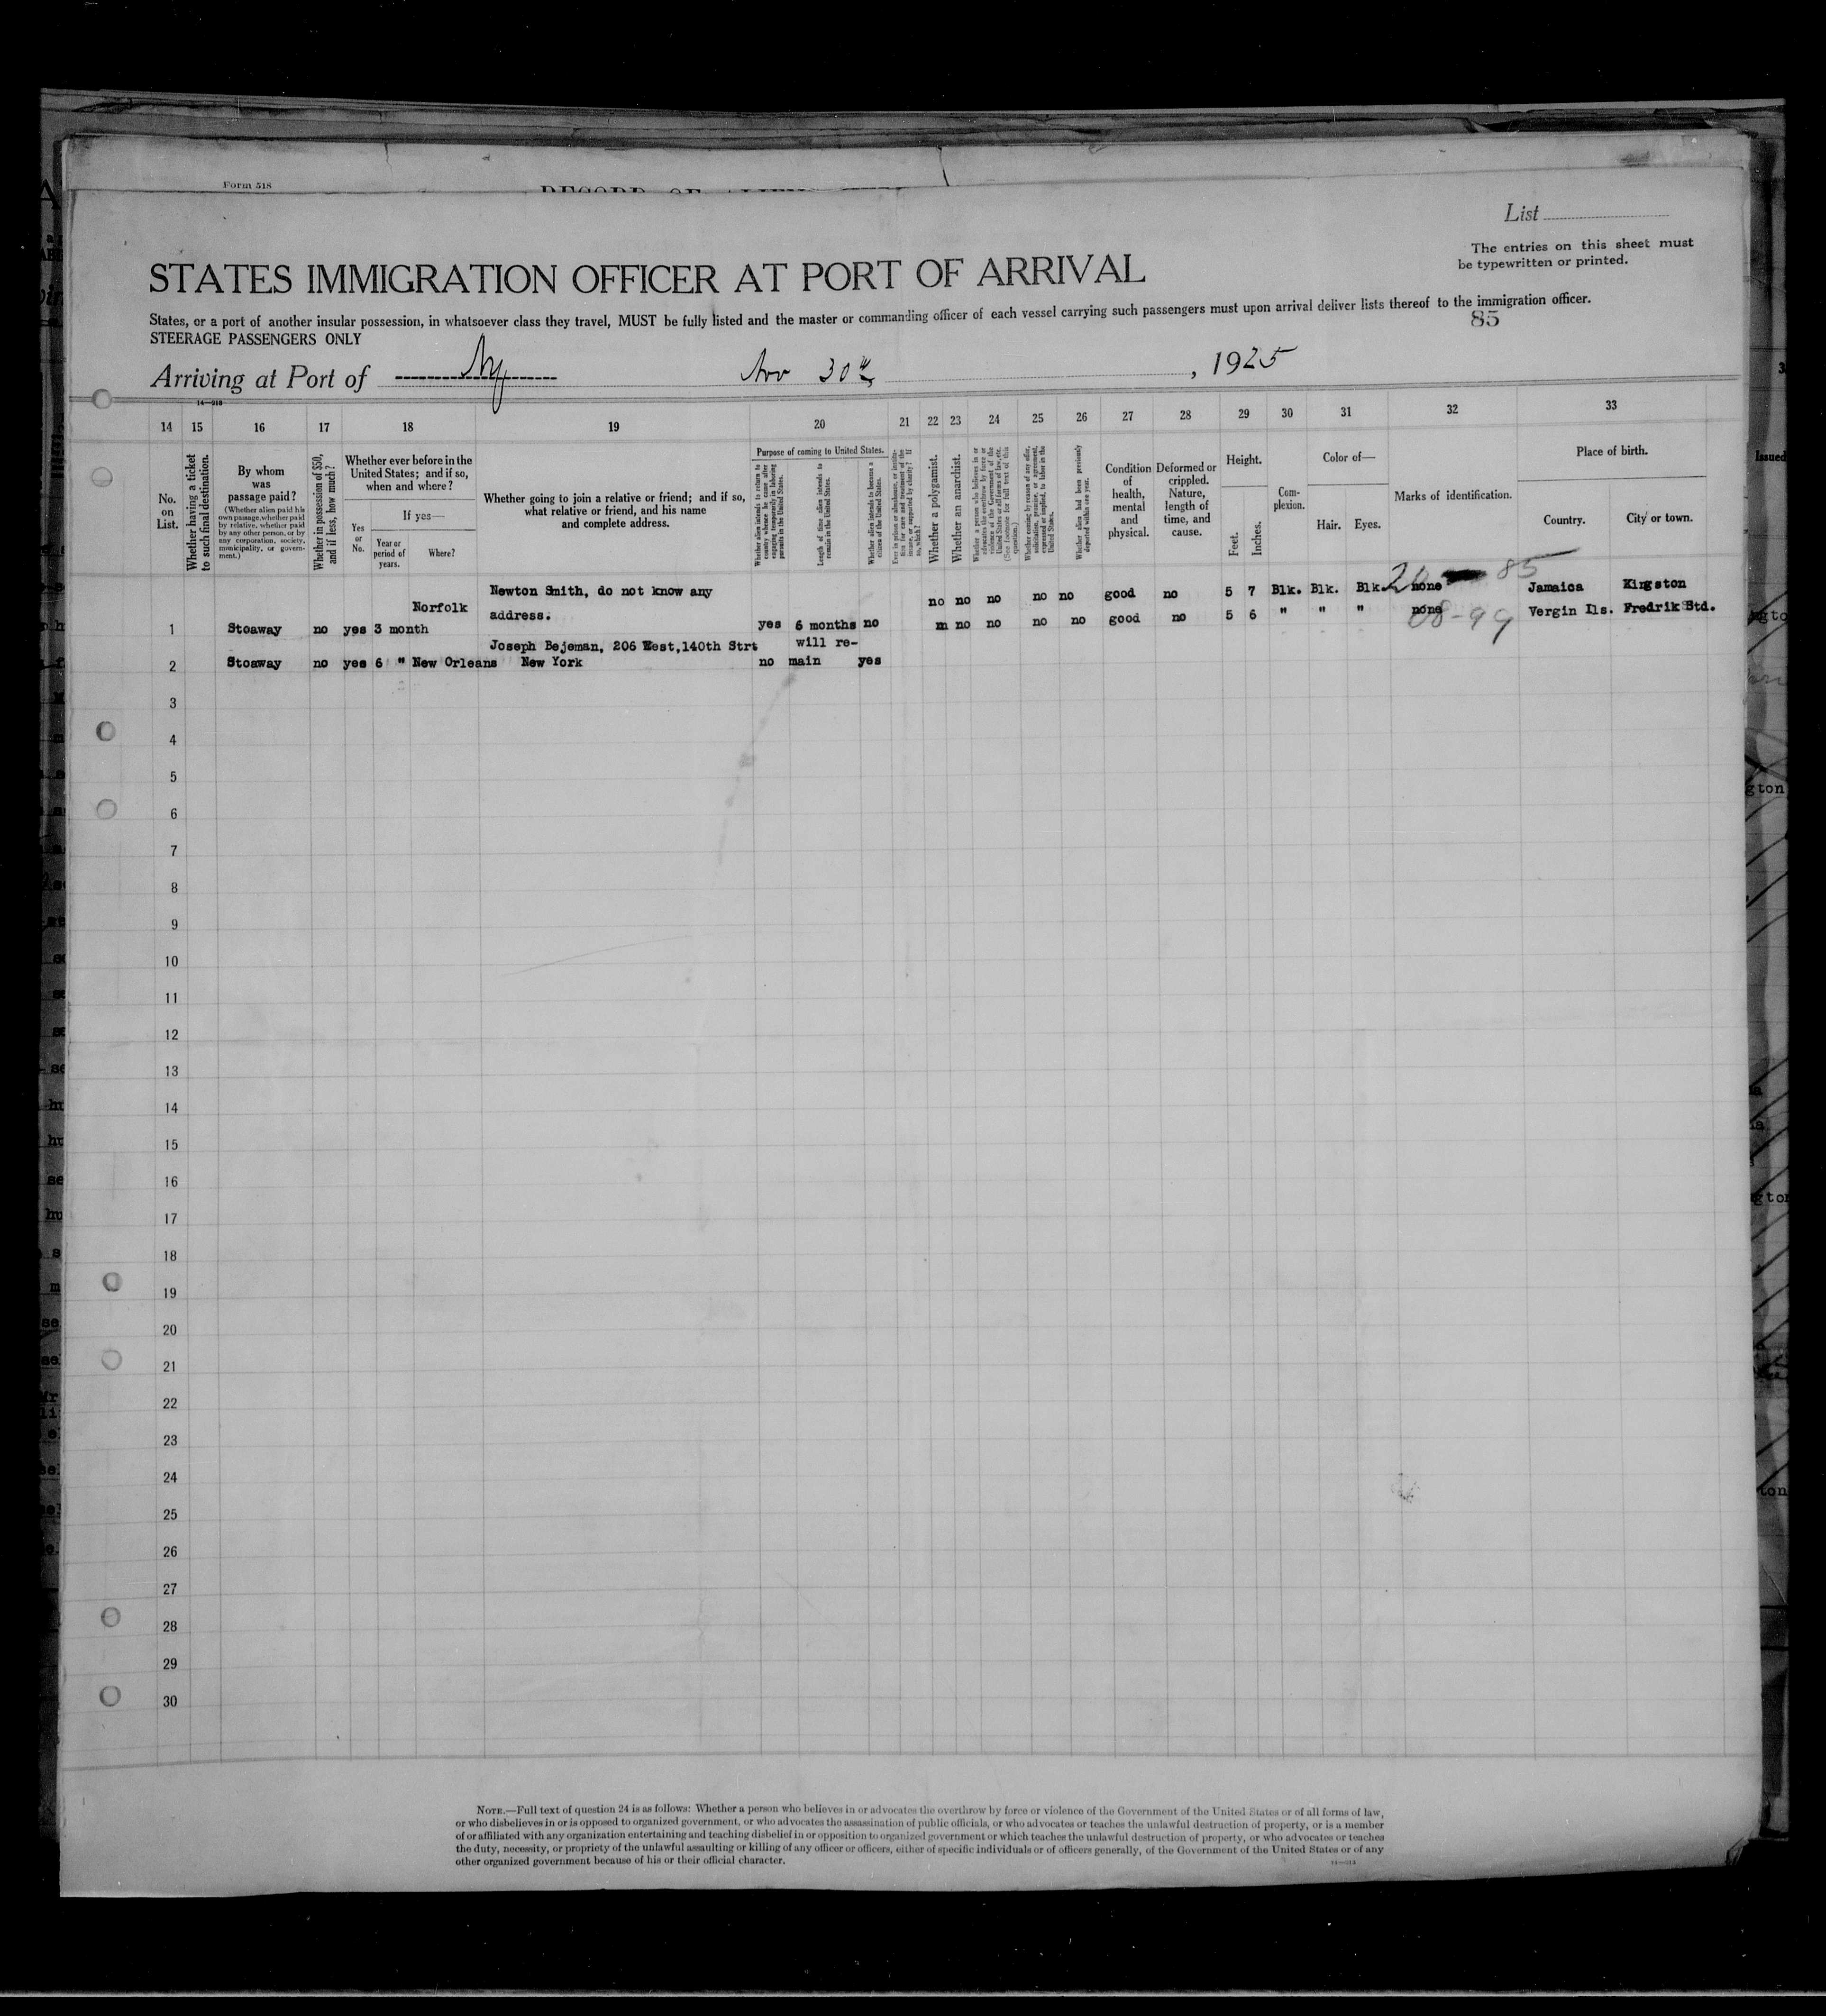 Form 518
List
The entries on this sheet must
be typewritten or printed.
STATES IMMIGRATION OFFICER AT PORT OF ARRIVAL
States, or a port of another insular possession, in whatsoever class they travel, MUST be fully listed and the master or commanding officer of each vessel carrying such passengers must upon arrival deliver lists thereof to the immigration officer.
85
STEERAGE PASSENGERS ONLY
Arriving at Port of Ny Nov 30th, 1925
14 15 16 17 18 19 20 21 22 23 24 25 26 27 28 29 30 31 32 33
No. on List.
Whether having a ticket to such final destination.
By whom was passage paid?
(Whether alien paid his own passage, whether paid by relative, whether paid by any other person, or by any corporation, society, municipality, or government.)
Whether in possession of $50, and if less, how much?
Whether ever before in the United States; and if so, when and where?
Yes or No.
If yes—
Year or period of years.
Where?
Whether going to join a relative or friend; and if so, what relative or friend, and his name and complete address.
Purpose of coming to United States.
Whether alien intends to return to country whence he came after engaging temporarily in laboring pursuits in the United States.
Length of time alien intends to remain in the United States.
Whether alien intends to become a citizen of the United States.
Ever in prison or almshouse, or institution for care and treatment of the insane, or supported by charity? If so, which?
Whether a polygamist.
Whether an anarchist.
Whether a person who believes in or advocates the overthrow by force or violence of the Government of the United States or all forms of law, etc. (See footnote for full text of this question.)
Whether coming by reason of any offer, solicitation, promise, or agreement, expressed or implied, to labor in the United States.
Whether alien had been previously deported within one year.
Condition of health, mental and physical.
Deformed or crippled. Nature, length of time, and cause.
Height.
Feet. Inches.
Complexion.
Color of—
Hair. Eyes.
Marks of identification.
Place of birth.
Country. City or town.
Newton Smith, do not know any no no no no no good no 5 7 Blk. Blk. Blk. none 85 Jamaica Kingston
Norfolk address. m no no no no good no 5 6 " " " none 08-99 Vergin Ils. Fredrik Std.
1 Stoaway no yes 3 month yes 6 months no
Joseph Bejeman, 206 West,140th Strt will re-
2 Stoaway no yes 6 " New Orleans New York no main yes
3
4
5
6
7
8
9
10
11
12
13
14
15
16
17
18
19
20
21
22
23
24
25
26
27
28
29
30
NOTE.—Full text of question 24 is as follows: Whether a person who believes in or advocates the overthrow by force or violence of the Government of the United States or of all forms of law,
or who disbelieves in or is opposed to organized government, or who advocates the assassination of public officials, or who advocates or teaches the unlawful destruction of property, or is a member
of or affiliated with any organization entertaining and teaching disbelief in or opposition to organized government or which teaches the unlawful destruction of property, or who advocates or teaches
the duty, necessity, or propriety of the unlawful assaulting or killing of any officer or officers, either of specific individuals or of officers generally, of the Government of the United States or of any
other organized government because of his or their official character.